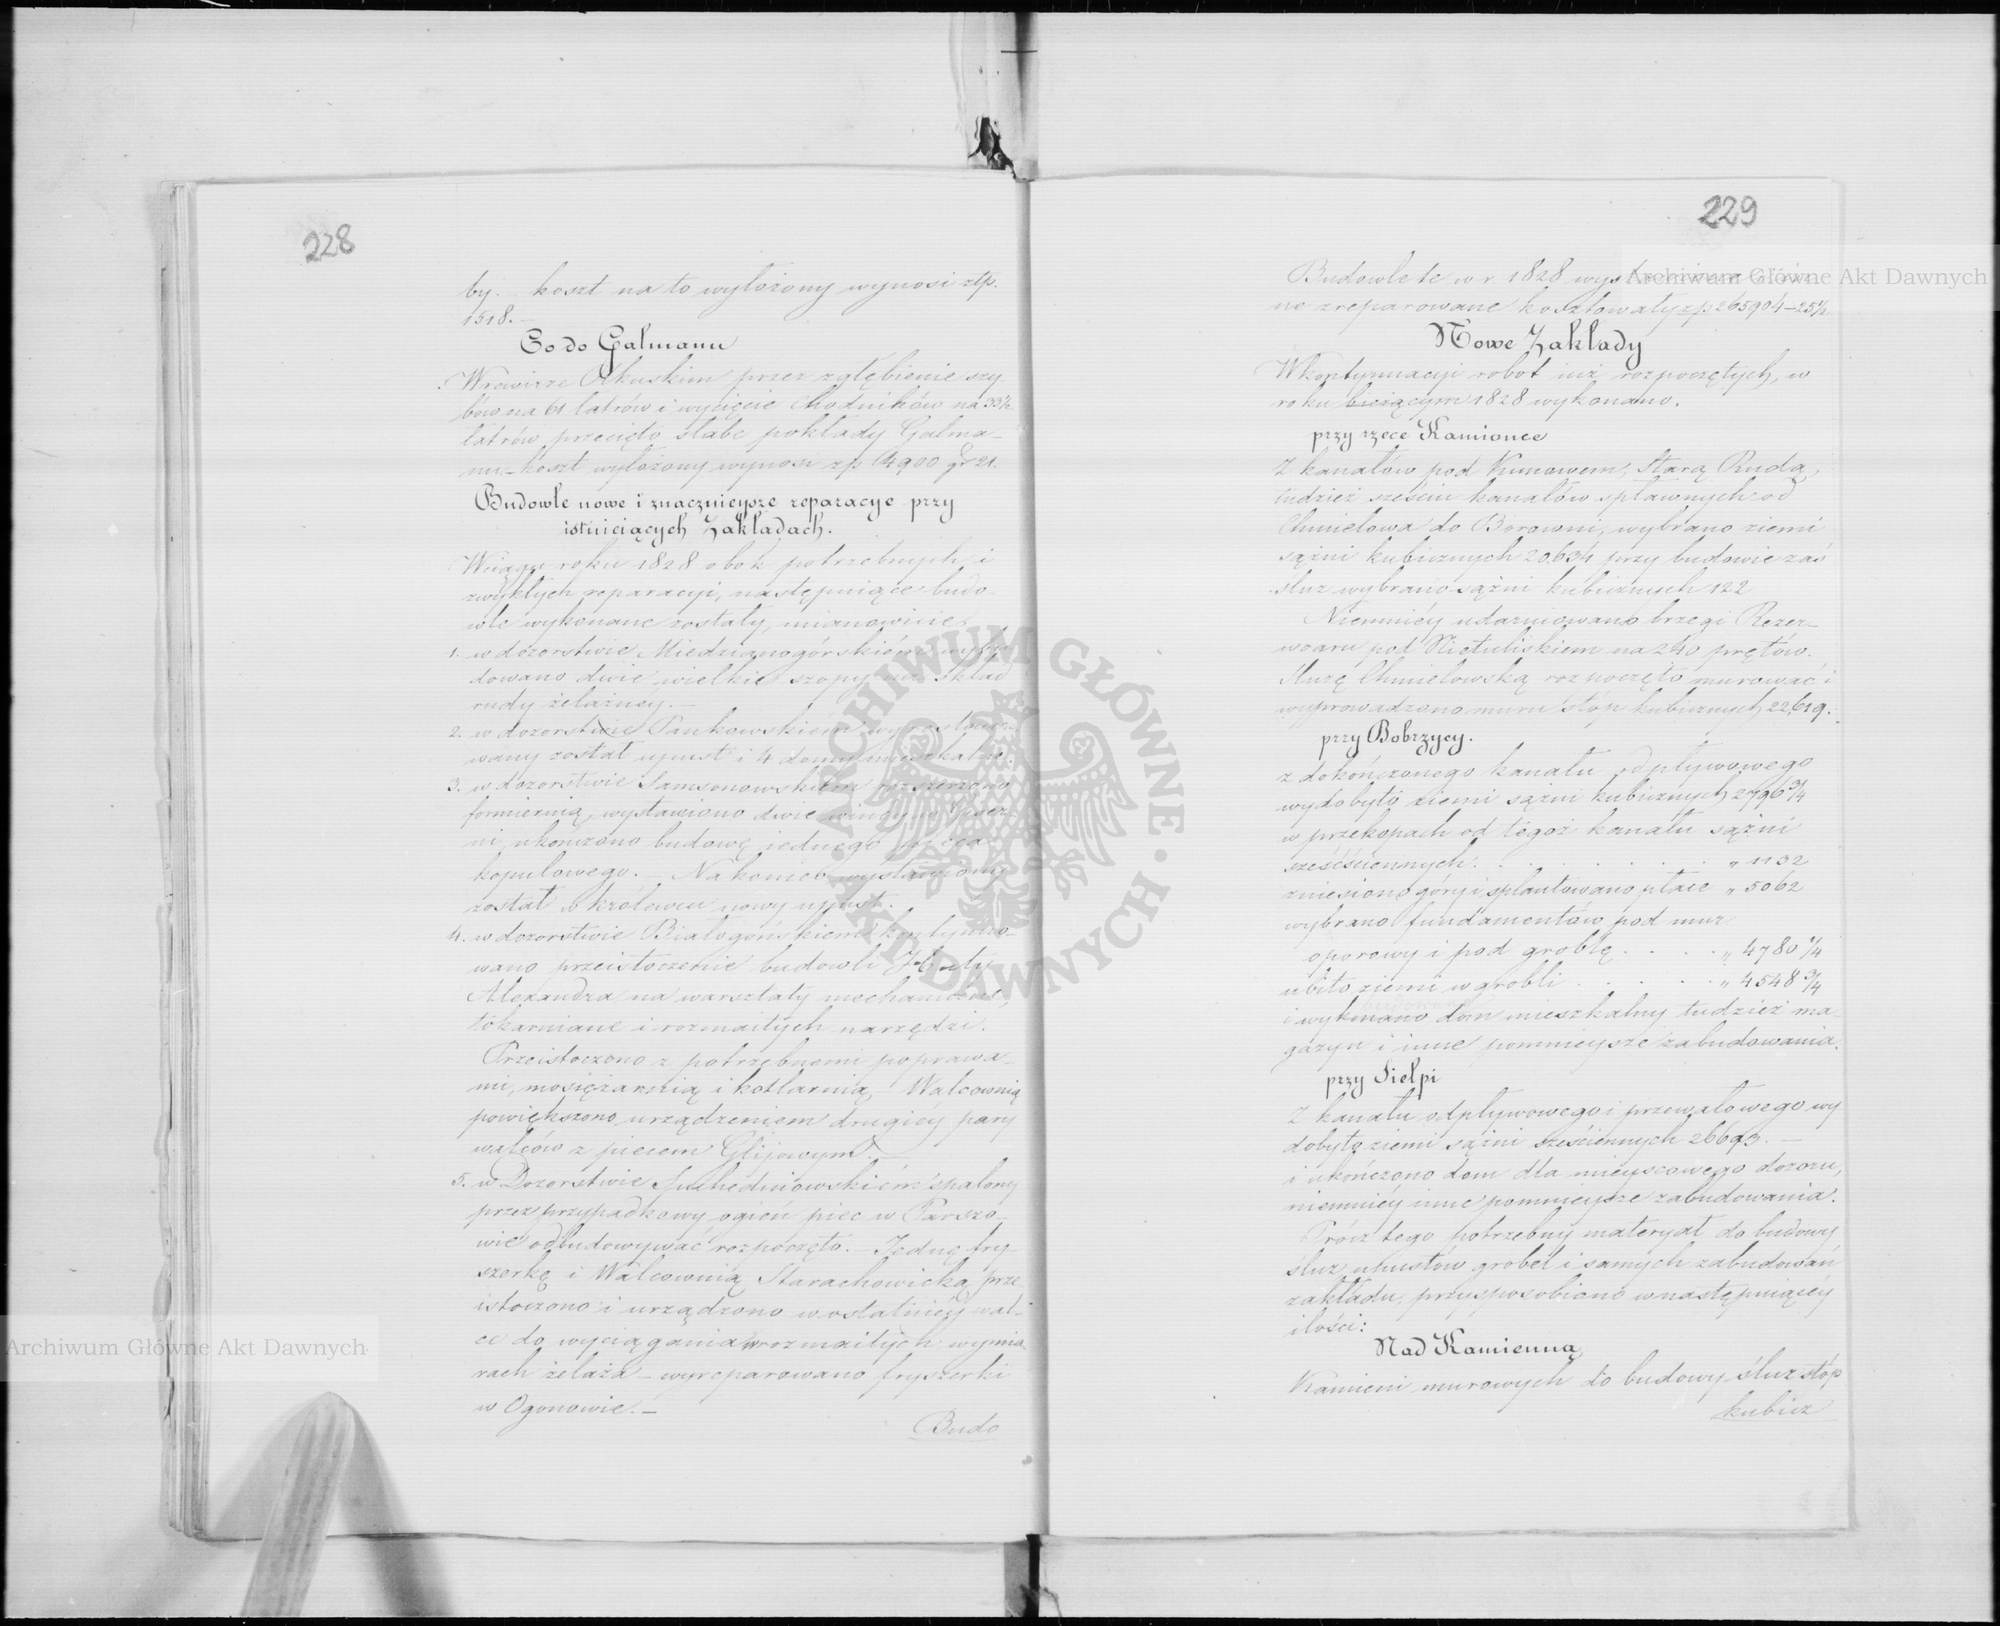 228
by. koszt na to wyłożony wynosi złp.
1518.
Co do Galmanu
W rewirze Olkuskim przez zgłębienie szy
bów na 61 latrów i wycięcie chodników na 33½
latrów przecięto słabe pokłady Galma-
nu – koszt wyłożony wynosi zp 14900 gr 21.
Budowle nowe i znacznieysze reparacye przy
istnieiących Zakładach.
W ciągu roku 1828 obok potrzebnych i
zwykłych reparacyi, następuiące budo-
wle wykonane zostały, mianowicie
1. w dozorstwie Miedzianogórskiém wybu
dowano dwie wielkie szopy na skład
rudy żelaznéy. –
2. w dozorstwie Pankowskiem
wany został upust i 4 domy mieszkalne.
3. w dozorstwie Samsonowskiem rozszerzono
formiernią, wystawiono dwie windy
ni, ukończono budowę iednego pieca
kopulowego. – Nakoniec wystawiony
został w królewcu nowy upust.
4. w dozorstwie Białogońskiem kontynuo-
wano przeistoczenie budowli Huty
Alexandra na warsztaty mechaniczne,
tokarniane i rozmaitych narzędzi.
Przeistoczono z potrzebnemi poprawa-
mi, mosiężarnią i kotlarnią, – Walcownią
powiększono urządzeniem drugiéy pary
walców z piecem Glijowym. –
5. w Dozorstwie Suchedniowskiém spalony
przez przypadkowy ogień piec w Parszo-
wie odbudowywać rozpoczęto. – Jednę fry-
szerkę i Walcownią Starachowicką prze
istoczono i urządzono w ostatniéy wal-
ce do wyciągania w rozmaitych wymia
rach żelaza – wyreparowano fryszerki
w Ogonowie. –
Budo
229
Budowle te w r. 1828
no zreparowane kosztowały zp 265904 – 25½
Nowe Zakłady
W kontynuacyi robót iuż rozpoczętych, w
roku bieżącym 1828 wykonano.
przy rzece Kamionce
Z kanałów pod Kunowem, Starą Rudą,
tudzież sześciu kanałów spławnych od
Chmielowa do Borowni, wybrano ziemi
sążni kubicznych 20.634 przy budowie zaś
śluz wybrano sążni kubicznych 122
Niemniéy udarniowano brzegi Rezer-
woaru pod Nietuliskiem na 240 prętów.
Śluzę Chmielowską rozpoczęto murować i
wyprowadzono muru stóp kubicznych 22,619.
przy Bobrzycy.
z dokończonego kanału odpływowego
wydobyto ziemi sążni kubicznych 2796¾
w przekopach od tegoż kanału sążni
sześciennych . . . . . . . " 1132
zniesiono góry i splantowano place " 5062
wybrano fundamentów pod mur
oporowy i pod groblę . . . . " 4780¼
ubito ziemi w grobli . . . . . " 4548¾
i wykonano dom mieszkalny tudzież ma-
gazyn i inne pomnieysze zabudowania.
przy Sielpi
Z kanału odpływowego i przewałowego wy
dobyto ziemi sążni sześciennych 26693. –
i ukończono dom dla mieyscowego dozoru,
niemniéy inne pomnieysze zabudowania.
Prócz tego potrzebny materyał do budowy
śluz, upustów grobel i samych zabudowań
zakładu, przysposobiono w następuiącéy
ilości:
Nad Kamienną
Kamieni murowych do budowy śluz stóp
kubicz
Archiwum Główne Akt Dawnych
Archiwum Główne Akt Dawnych
· ARCHIWUM GŁÓWNE · AKT DAWNYCH